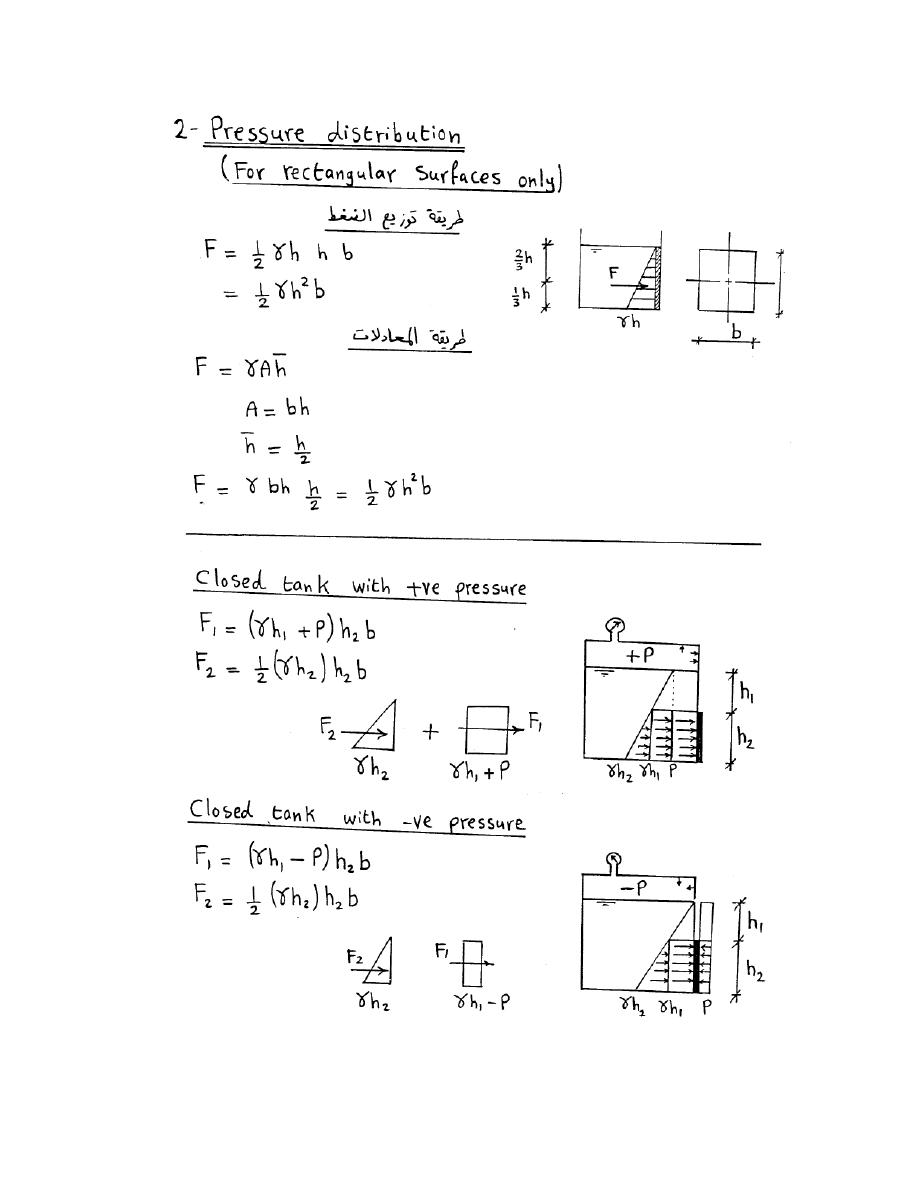 2- Pressure distribution
(For rectangular Surfaces only)
طريقة توزيع الضغط
F = 1/2 γh h b
= 1/2 γh²b
2/3h
1/3h
F
γh
b
طريقة المعادلات
F = γAh̅
A = bh
h̅ = h/2
F = γ bh h/2 = 1/2 γh²b
Closed tank with +ve pressure
F₁ = (γh₁ + P) h₂ b
F₂ = 1/2 (γh₂) h₂ b
F₂ + F₁
γh₂ γh₁ + P
+P
h₁
h₂
γh₂ γh₁ P
Closed tank with -ve pressure
F₁ = (γh₁ - P) h₂ b
F₂ = 1/2 (γh₂) h₂ b
F₂ F₁
γh₂ γh₁ - P
-P
h₁
h₂
γh₂ γh₁ P